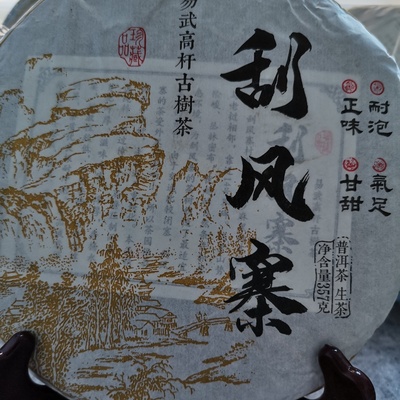 易武高杆古樹茶
刮风寨
耐泡
氣足
正味
甘甜
普洱茶 生茶
净含量357克